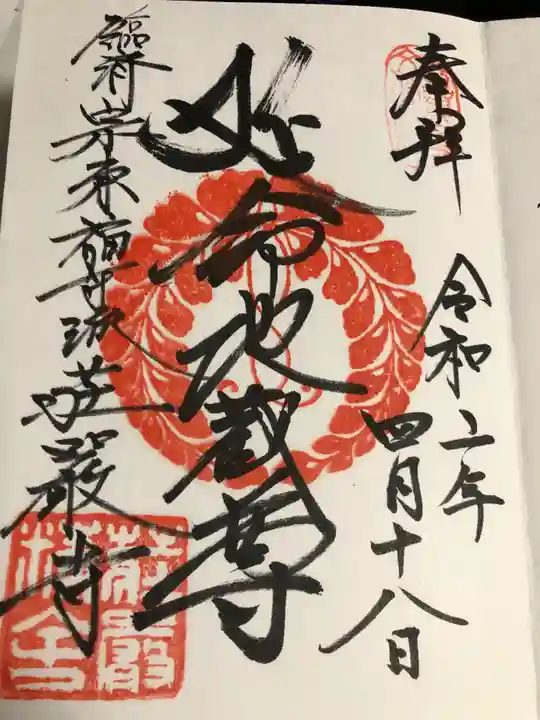 奉拝
令和二年
四月十八日
延命地蔵尊
臨済宗東福寺派荘厳寺